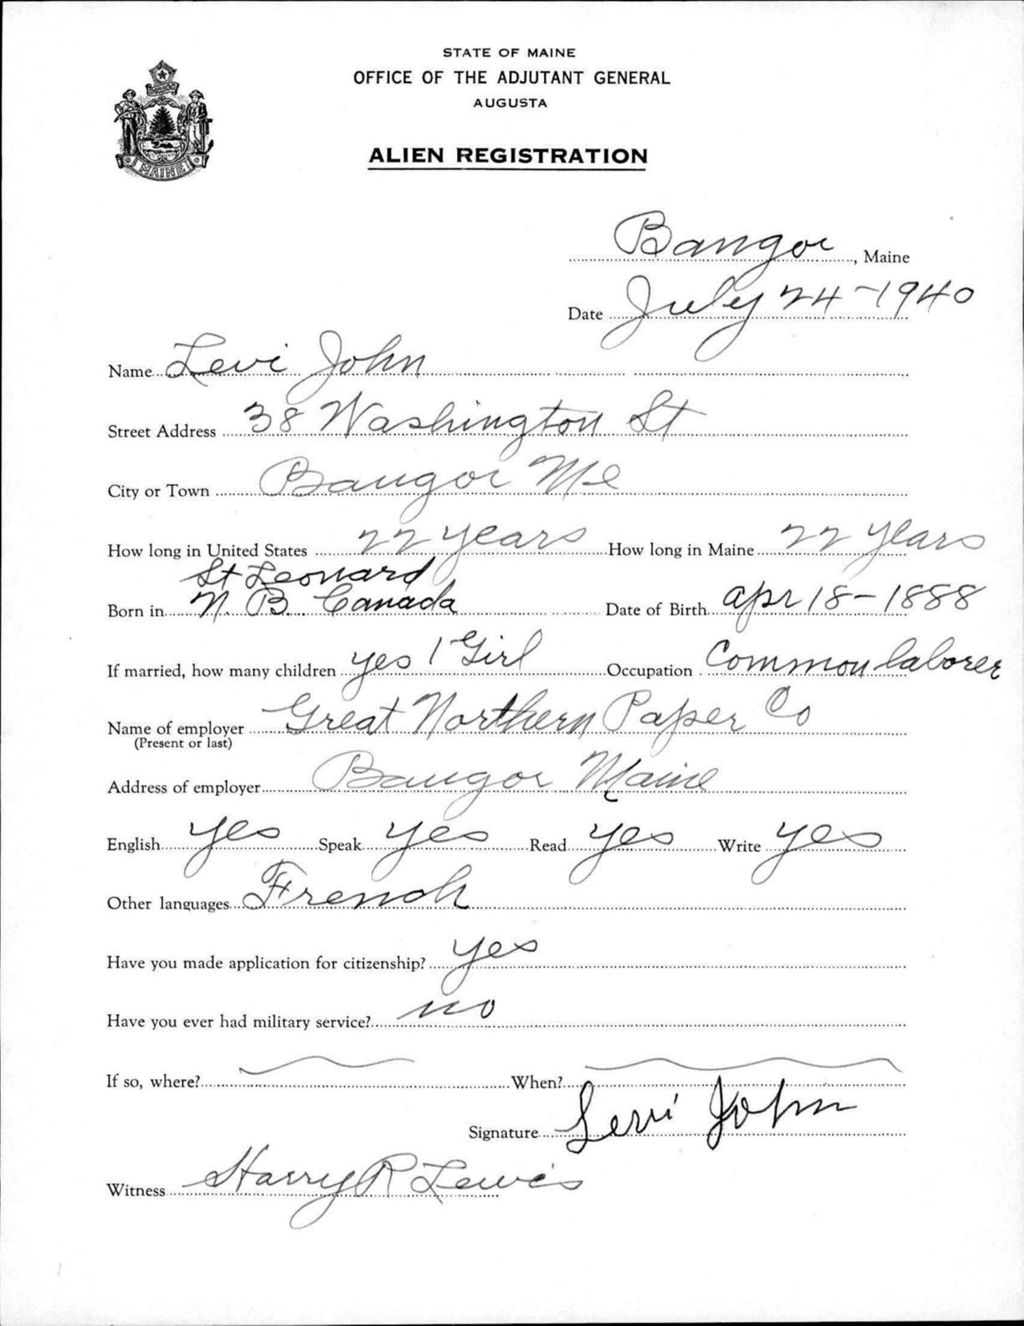 STATE OF MAINE
OFFICE OF THE ADJUTANT GENERAL
AUGUSTA
ALIEN REGISTRATION
MAINE
Bangor, Maine
Date July 24-1940
Name Levi John
Street Address 38 Washington St
City or Town Bangor Me
How long in United States 22 years How long in Maine 22 years
St Leonard
Born in N. B. Canada Date of Birth Apr 18-1888
If married, how many children yes 1 Girl Occupation Common laborer
Name of employer Great Northern Paper Co
(Present or last)
Address of employer Bangor Maine
English yes Speak yes Read yes Write yes
Other languages French
Have you made application for citizenship? yes
Have you ever had military service? no
If so, where? When?
Signature Levi John
Witness Harry R Lewis